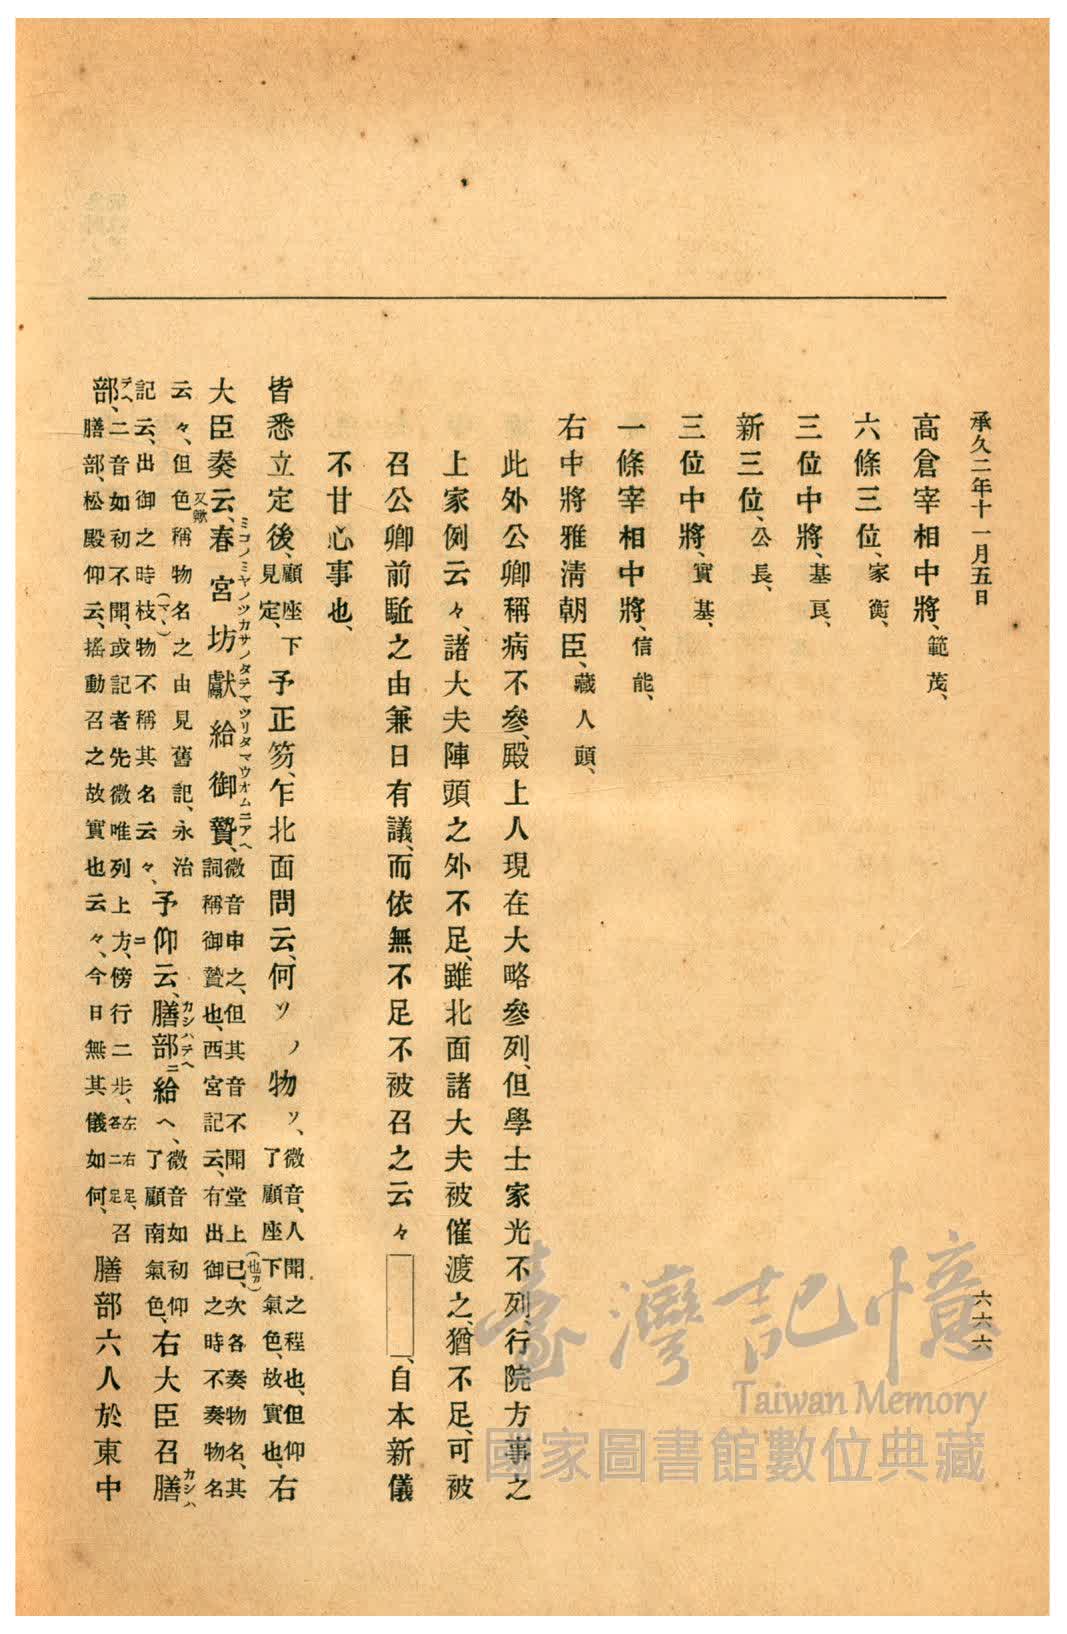 承久二年十一月五日
六六六
高倉宰相中將、範茂、
六條三位、家衡、
三位中將、基良、
新三位、公長、
三位中將、實基、
一條宰相中將、信能、
右中將雅淸朝臣、藏人頭、
此外公卿稱病不參、殿上人現在大略參列、但學士家光不列、行院方事之
上家例云々、諸大夫陣頭之外不足、雖北面諸大夫被催渡之、猶不足、可被
召公卿前駈之由兼日有議、而依無不足不被召之云々、自本新儀
不甘心事也、
皆悉立定後、顧座下見定、予正笏、乍北面問云、何ソノ物ソ、微音、人聞之程也、但仰了顧座下氣色、故實也、右
大臣奏云、春宮坊獻給御贄、微音申之、但其音不聞堂上已、次各奏物名、其詞稱御贄也、西宮記云、有出御之時不奏物名
ミコノミヤノツカサノタテマツリタマウオムニアヘ
又歟
(也カ)
云々、但色稱物名之由見舊記、永治記云、出御之時枝物不稱其名云々、予仰云、膳部ニ給ヘ、微音如初仰了顧南氣色、右大臣召膳
(マヽ)
カシハテヘ
カシハ
部、二音如初不開、或記者先微唯列上方、傍行二步、左右各二足、召膳部、松殿仰云、搖動召之故實也云々、今日無其儀如何、膳部六人於東中
テヘ
ニ
臺灣記憶
Taiwan Memory
國家圖書館數位典藏